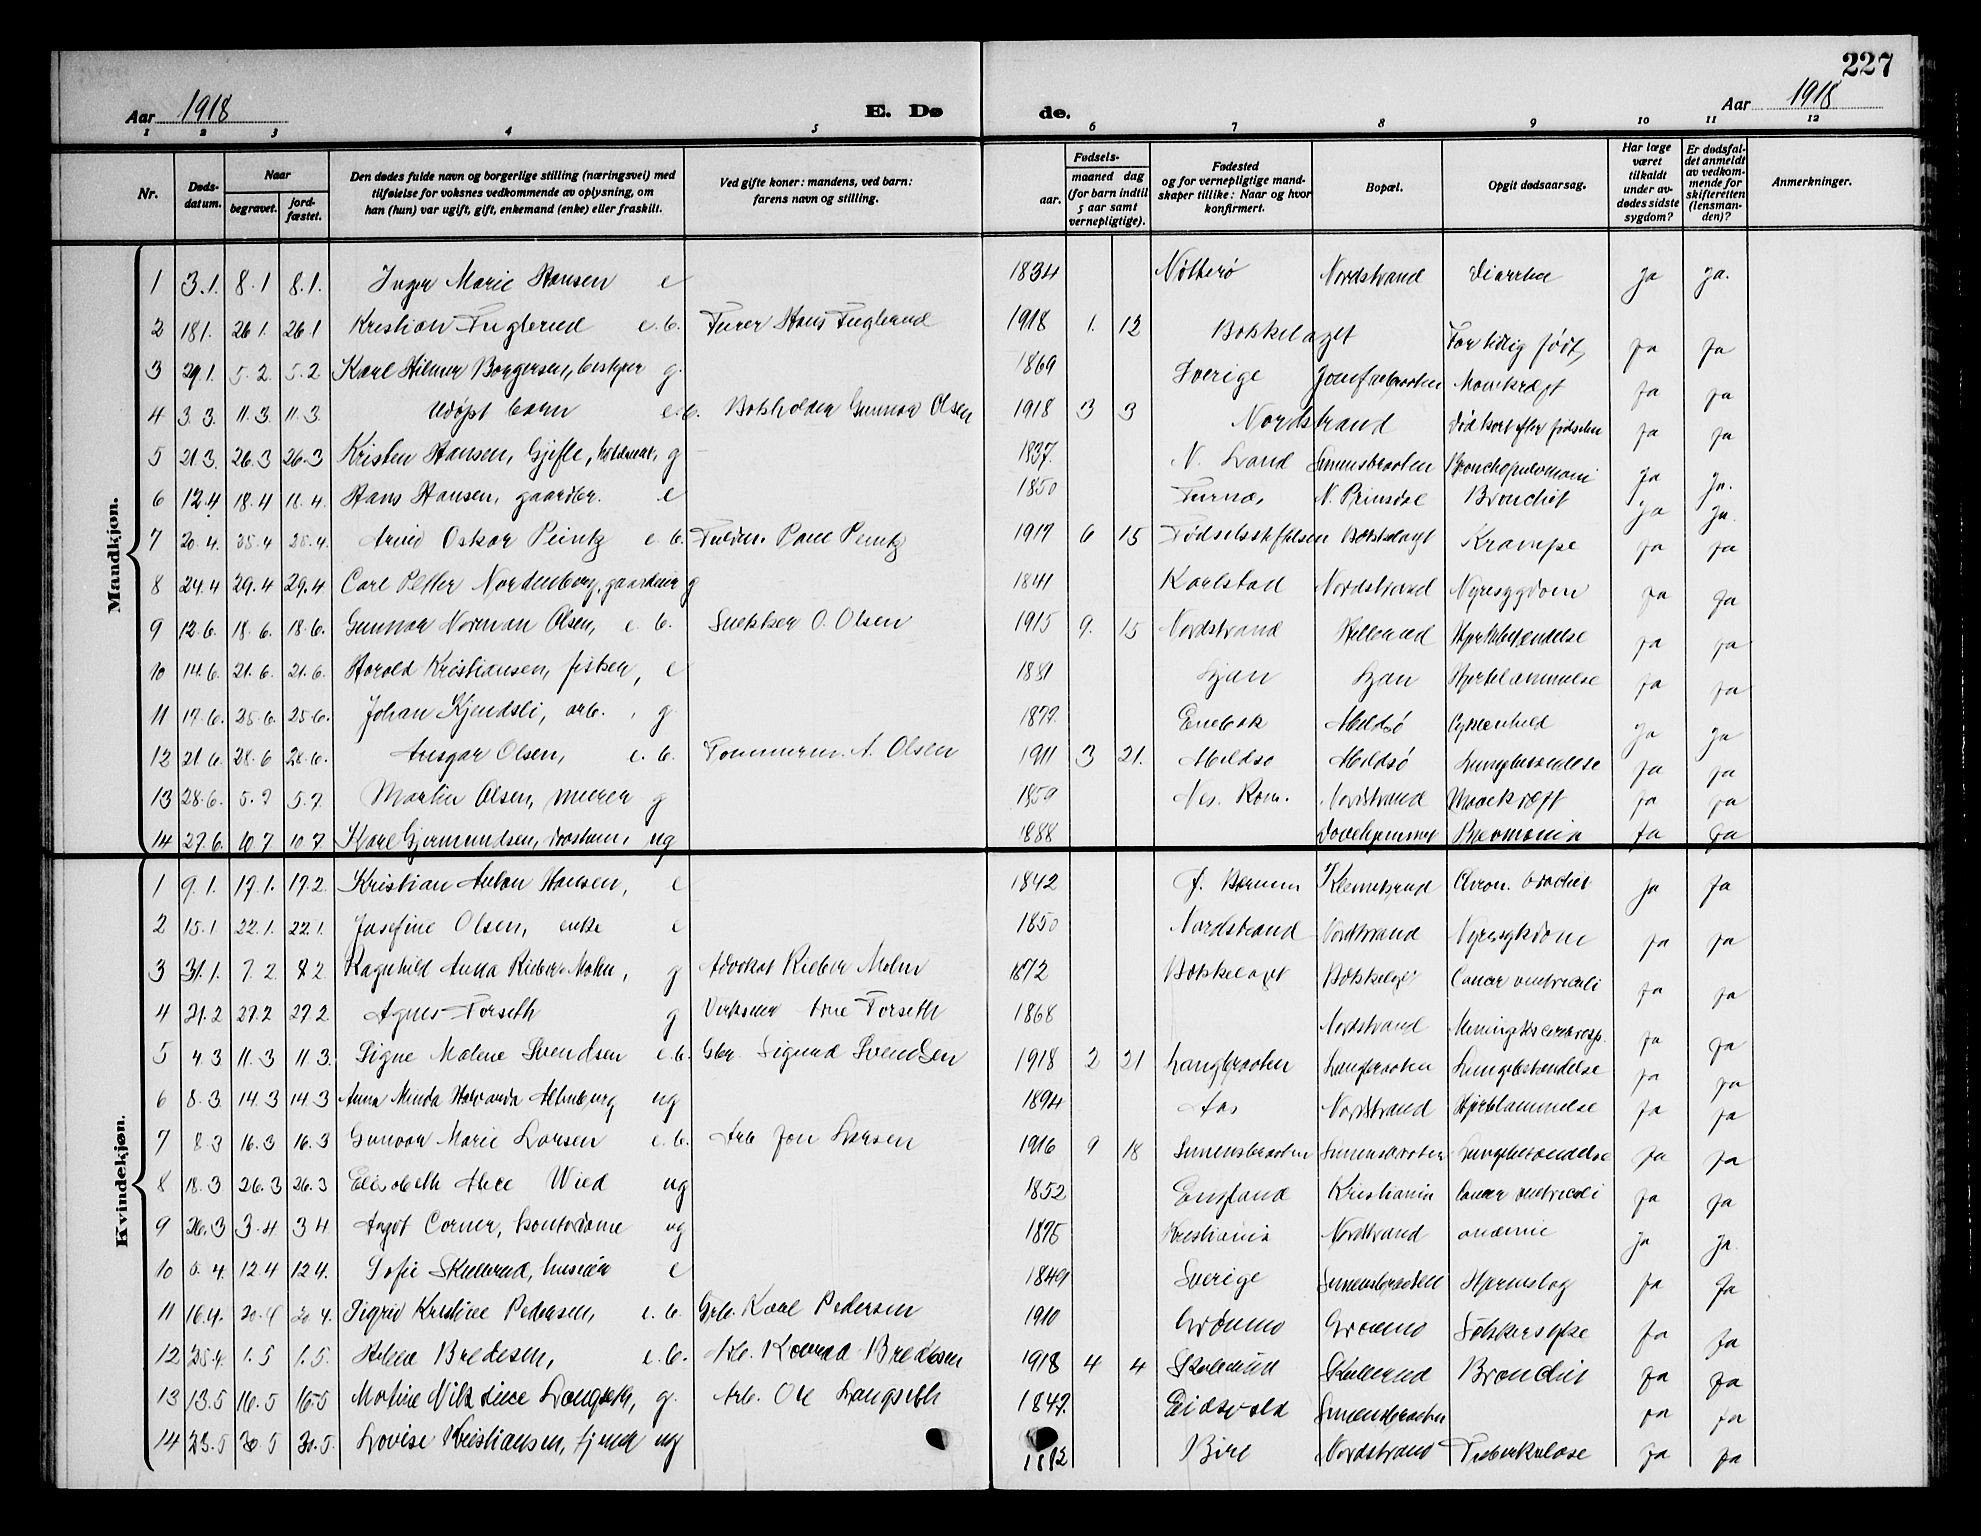 227
Aar 1918 E. Dø de. Aar 1918
1 2 3 4 5 6 7 8 9 10 11 12
Nr.
Døds-
datum.
Naar
begravet.
jord-
fæstet.
Den dødes fulde navn og borgerlige stilling (næringsvei) med
tilføielse for voksnes vedkommende av oplysning, om
han (hun) var ugift, gift, enkemand (enke) eller fraskilt.
Ved gifte koner: mandens, ved barn:
farens navn og stilling.
Fødsels-
aar.
maaned dag
(for barn indtil
5 aar samt
vernepligtige).
Fødested
og for vernepligtige mand-
skaper tillike: Naar og hvor
konfirmert.
Bopæl.
Opgit dødsaarsag.
Har læge
været
tilkaldt
under av-
dødes sidste
sygdom?
Er dødsfal-
det anmeldt
av vedkom-
mende for
skifteretten
(lensman-
den)?
Anmerkninger.
Mandkjøn.
1 3.1. 8.1 8.1. Inger Marie Hansen e 1834 Nøtterø Nordstrand Diarrhe Ja Ja.
2 18.1. 26.1. 26.1 Kristian Fuglerud e.b. Hans Fuglerud 1918 1. 12 Bøtskelaget For tidig født, Ja Ja
3 29.1. 5.2. 5.2 Karl Hilmer Borgersen, g. 1869 Sverige Ja Ja
4 3.3. 11.3 11.3 Udøpt barn e.b. Gunnar Olsen 1918 3 3 Nordstrand død kort efter fødselen Ja Ja
5 21.3. 26.3 26.3 Kristen Hansen, Gjefle, g 1837. N. Land Simensbraaten Ja Ja.
6 12.4 18.4 18.4. Hans Hansen, gaardbr. e 1850 N. Prinsdal Bronchit Ja Ja.
7 20.4. 25.4 25.4. Arvid Oskar Peintz e.b. Paul Peintz 1917 6 15 Fødselsstiftelsen Bøtskelaget Krampe Ja Ja
8 24.4 29.4 29.4. Carl Petter Nordenborg, g 1841 Karlstad Nordstrand Nyresygdom Ja Ja
9 12.6. 18.6. 18.6. Gunnar Norman Olsen, e.b. Snekker O. Olsen 1915 9. 15 Nordstrand Ja Ja
10 14.6. 21.6. 21.6. Harald Kristiansen, fisker, e Ljan Ljan Hjertelammelse Ja Ja
11 17.6. 25.6. 25.6. Johan Kjendsli, arb., g Enebak Ja Ja
12 21.6. 28.6 28.6. Ansgar Olsen, e.b. Tømmerm. A. Olsen 1911 3 21. Lungebetændelse Ja Ja
13 28.6. 5.7 5.7. Martin Olsen, murer g 1859 Nes. Rom. Nordstrand Ja Ja
14 27.6. 10.7 10.7. Karl Gjermundsen, ug 1888 Ja Ja
Kvindekjøn.
1 9.1. 17.1. 17.2. Kristian Anton Hansen, e 1842 Chron. Ja Ja
2 15.1 22.1. 22.1. Josefine Olsen, enke e 1850 Nordstrand Nordstrand Nyresykdom Ja Ja
3 31.1. 7.2 8.2 Ragnhild Anna Rieber-Mohn, g Advokat Rieber Mohn 1872 Bøtskelaget Bøtskelaget Cancer ventriculi Ja Ja
4 21.2 27.2 27.2. Agnes Forseth g Arne Forseth 1868 Nordstrand Ja Ja
5 4.3 11.3 11.3. Signe Malene Svendsen e.b. Gbr. Sigurd Svendsen 1918 2 21 Langbraaten Langbraaten Lungebetændelse Ja Ja
6 8.3. 14.3 14.3 Anna Minda Altenburg ug 1894 Aas Nordstrand Hjertelammelse Ja Ja
7 8.3 16.3 16.3 Gunvor Marie Larsen e.b. Arb Jon Larsen 1916 9 18 Simensbraaten Simensbraaten Lungebetændelse Ja Ja
8 18.3 26.3 26.3 Elisabeth Alice Wied ug 1852 England Kristiania Cancer ventriculi Ja Ja
9 26.3 3.4 3 4 Ingot Corner, kontordame ug 1875 Kristiania Nordstrand anæmi Ja Ja.
10 5.4. 12.4 12.4. Sofie Skullerud, e 1849 Sverige Simensbraaten Hjerneslag Ja Ja
11 16.4. 20.4 20 4. Sigrid Kristine Pedersen, e.b. Karl Pedersen 1910 Grønmo Grønmo Sukkersyke Ja Ja
12 25.4. 1.5 1.5. Bredesen, e.b. Arb. Konrad Bredesen 1918 4 4 Skullerud Skullerud Bronchit Ja Ja
13 13.5 16.5 16.5 Langseth, g. Arb. Ole Langseth 1847. Eidsvold Simensbraaten Ja Ja
14 23.5 30 5 30.5. Lovise Kristiansen, ug Biri Nordstrand Tuberkulose Ja Ja